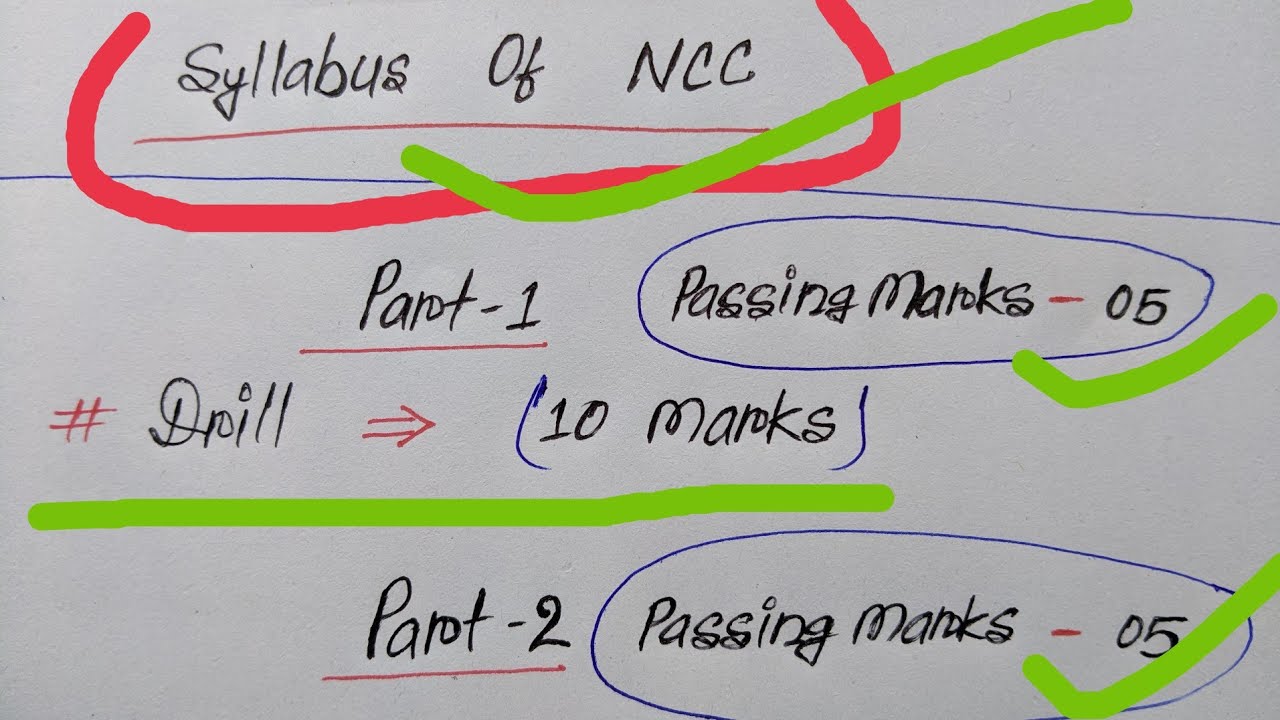 Syllabus Of NCC
Part-1 Passing Marks - 05
# Drill ⇒ (10 Marks)
Part-2 Passing Marks - 05